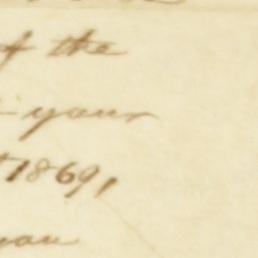 of the
your
1869,
you